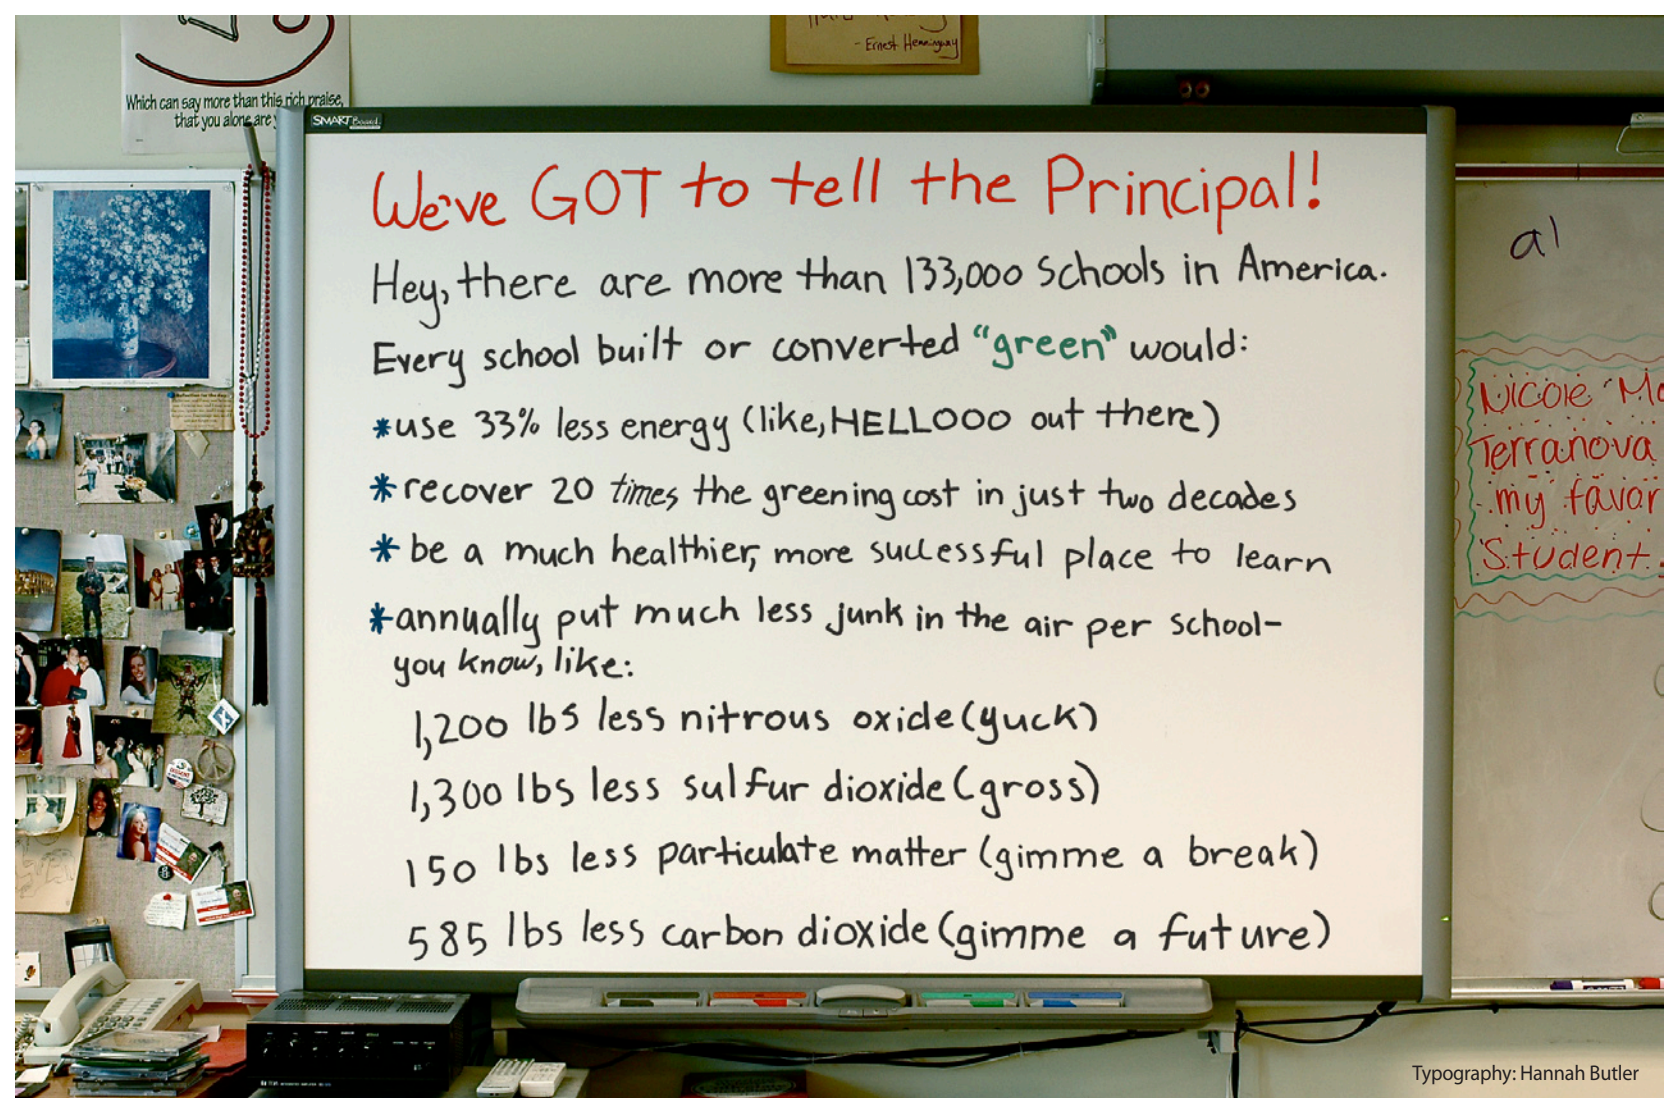 - Ernest Hemingway
Which can say more than this rich praise,
that you alone are
SMART Board
We've GOT to tell the Principal!
Hey, there are more than 133,000 Schools in America.
Every school built or converted "green" would:
*use 33% less energy (like, HELLOOO out there)
*recover 20 times the greening cost in just two decades
*be a much healthier, more successful place to learn
*annually put much less junk in the air per school-
you know, like:
1,200 lbs less nitrous oxide (yuck)
1,300 lbs less sulfur dioxide (gross)
150 lbs less particulate matter (gimme a break)
585 lbs less carbon dioxide (gimme a future)
al
Nicole
Terranova
my favor
Student.
Typography: Hannah Butler